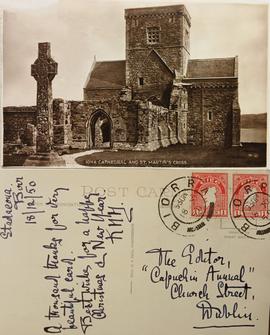 IONA CATHEDRAL AND ST. MARTIN'S CROSS.
POST CARD
BIORRA
Birr
18/12/50
A thousand thanks for very
beautiful card.
Best wishes for a happy
Christmas & New Year
The Editor,
"Capuchin Annual"
Church Street,
Dublin.